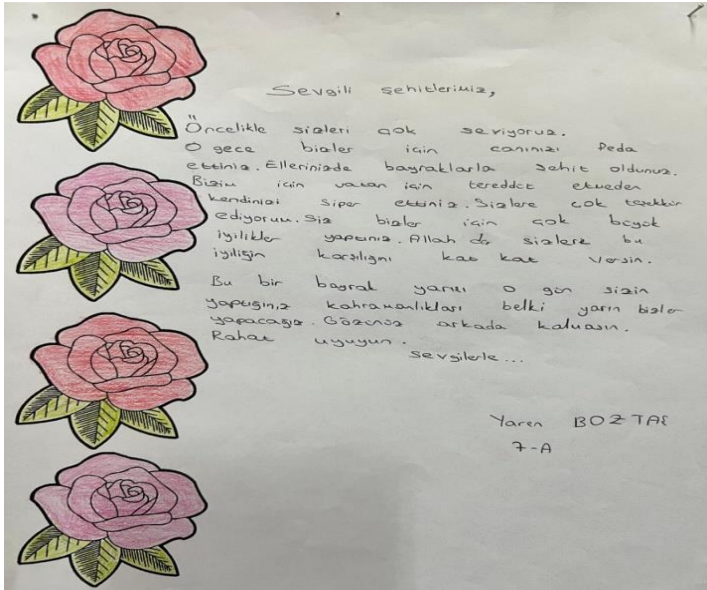 Sevgili Şehitlerimiz,
Öncelikle sizleri çok seviyoruz.
O gece bizler için canınızı feda
ettiniz. Ellerinizde bayraklarla şehit oldunuz.
Bizim için vatan için tereddüt etmeden
kendinizi siper ettiniz. Sizlere çok teşekkür
ediyorum. Siz bizler için çok büyük
iyilikler yaptınız. Allah da sizlere bu
iyiliğin karşılığnı kat kat versin.
Bu bir bayrak yarışı o gün sizin
yaptığınız kahramanlıkları belki yarın bizler
yapacağız. Gözünüz arkada kalmasın.
Rahat uyuyun.
Sevgilerle...
Yaren BOZTAŞ
7-A